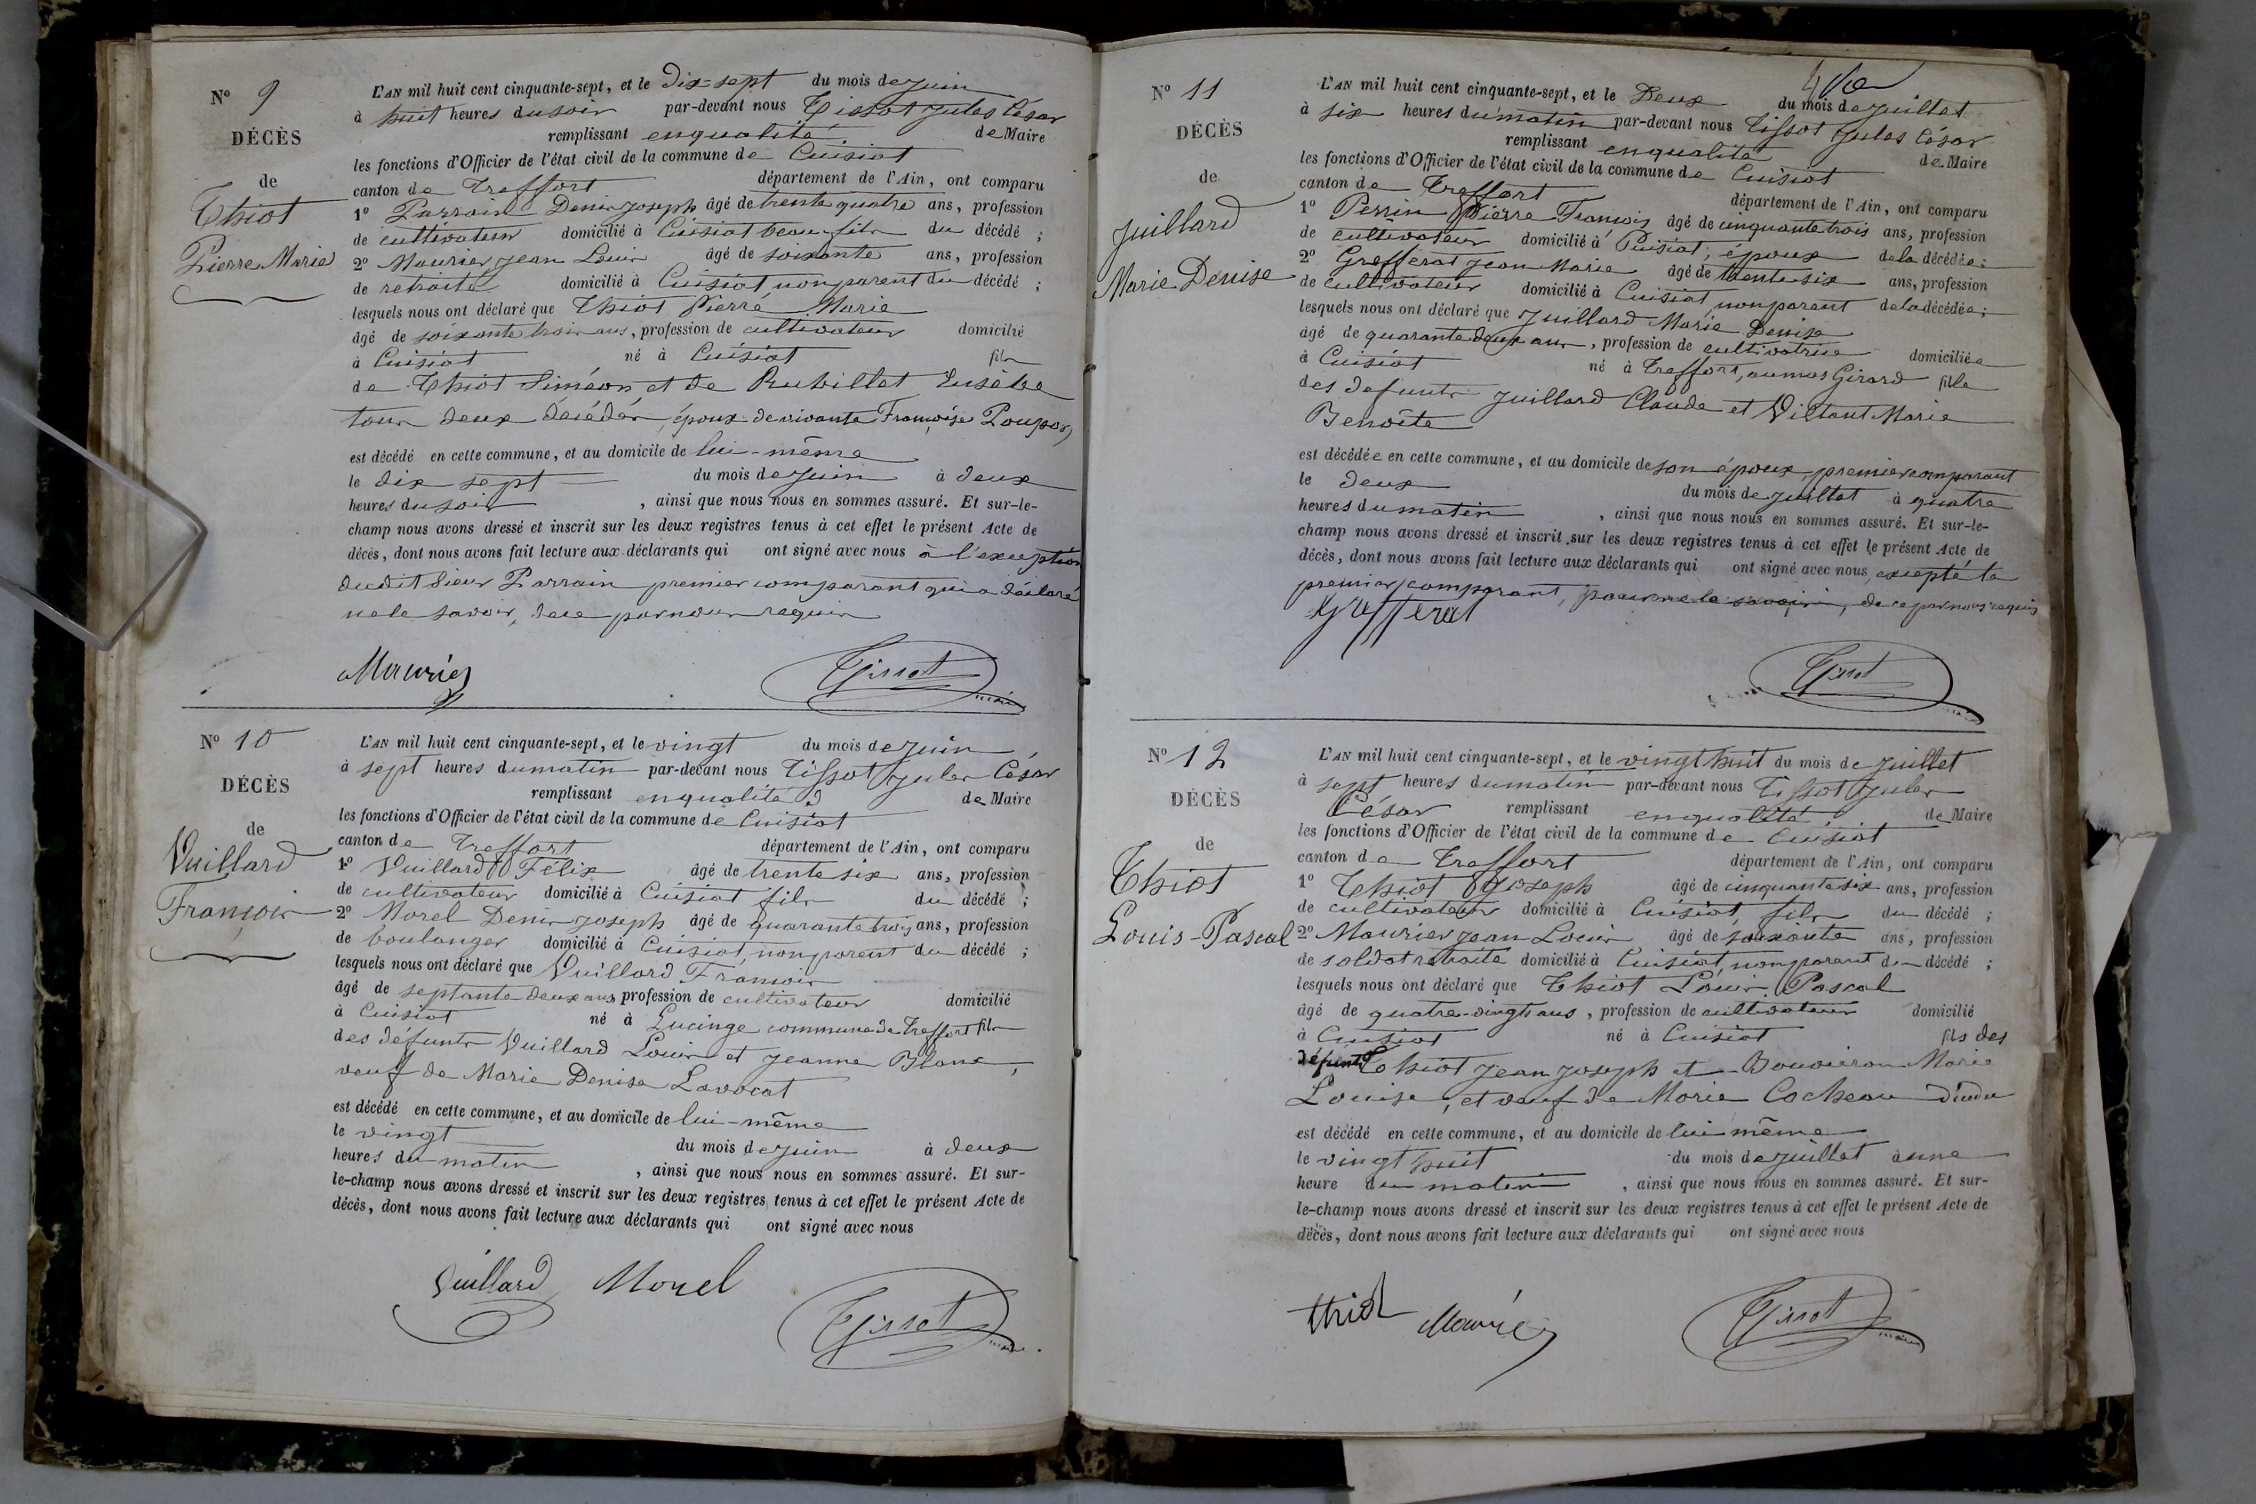 N° 9
DÉCÈS
de
Thiot
Pierre Marie
L'AN mil huit cent cinquante-sept, et le Dix-sept du mois de juin
à huit heures du soir par-devant nous Tissot Jules César
remplissant en qualité de Maire
les fonctions d'Officier de l'état civil de la commune de Cuisiat
canton de Treffort département de l'Ain, ont comparu
1° Parrain Denis Joseph âgé de trente quatre ans, profession
de cultivateur domicilié à Cuisiat beau-fils du décédé ;
2° Maurier Jean Louis âgé de soixante ans, profession
de retraité domicilié à Cuisiat, non parent du décédé ;
lesquels nous ont déclaré que Thiot Pierre Marie
âgé de soixante trois ans, profession de cultivateur domicilié
à Cuisiat né à Cuisiat fils
de Thiot Siméon et de Rubillet Eusèbe
tous deux décédés, époux de vivante Françoise Poupon,
est décédé en cette commune, et au domicile de lui-même
le dix sept du mois de juin à deux
heures du soir, ainsi que nous nous en sommes assuré. Et sur-le-
champ nous avons dressé et inscrit sur les deux registres tenus à cet effet le présent Acte de
décès, dont nous avons fait lecture aux déclarants qui ont signé avec nous à l'exception
dudit Sieur Parrain premier comparant qui a déclaré
ne le savoir, de ce par nous requis
Maurier
Tissot
maire
N° 10
DÉCÈS
de
Vuillard
François
L'AN mil huit cent cinquante-sept, et le vingt du mois de juin
à sept heures du matin par-devant nous Tissot Jules César
remplissant en qualité de Maire
les fonctions d'Officier de l'état civil de la commune de Cuisiat
canton de Treffort département de l'Ain, ont comparu
1° Vuillard Félix âgé de trente six ans, profession
de cultivateur domicilié à Cuisiat fils du décédé ;
2° Morel Denis Joseph âgé de quarante trois ans, profession
de boulanger domicilié à Cuisiat, non parent du décédé ;
lesquels nous ont déclaré que Vuillard François
âgé de septante deux ans profession de cultivateur domicilié
à Cuisiat né à Lucinge commune de Treffort fils
des défunts Vuillard Louis et Jeanne Blanc,
veuf de Marie Denise Lavocat
est décédé en cette commune, et au domicile de lui-même
le vingt du mois de juin à deux
heures du matin, ainsi que nous nous en sommes assuré. Et sur-
le-champ nous avons dressé et inscrit sur les deux registres tenus à cet effet le présent Acte de
décès, dont nous avons fait lecture aux déclarants qui ont signé avec nous
Vuillard Morel
Tissot
maire
N° 11
DÉCÈS
de
Juillard
Marie Denise
L'AN mil huit cent cinquante-sept, et le Deux du mois de juillet
à six heures du matin par-devant nous Tissot Jules César
remplissant en qualité de Maire
les fonctions d'Officier de l'état civil de la commune de Cuisiat
canton de Treffort département de l'Ain, ont comparu
1° Perrin Pierre François âgé de cinquante trois ans, profession
de cultivateur domicilié à Cuisiat, époux de la décédée ;
2° Grefferat Jean Marie âgé de trente six ans, profession
de cultivateur domicilié à Cuisiat, non parent de la décédée ;
lesquels nous ont déclaré que Juillard Marie Denise
âgé de quarante deux ans, profession de cultivatrice domiciliée
à Cuisiat né à Treffort, au mas Girard fille
des defunts Juillard Claude et Vittant Marie
Benoîte
est décédée en cette commune, et au domicile de son époux, premier comparant
le deux du mois de juillet à quatre
heures du matin, ainsi que nous nous en sommes assuré. Et sur-le-
champ nous avons dressé et inscrit sur les deux registres tenus à cet effet le présent Acte de
décès, dont nous avons fait lecture aux déclarants qui ont signé avec nous, excepté le
premier comparant, pour ne le savoir, de ce par nous requis
Grefferat
Tissot
N° 12
DÉCÈS
de
Thiot
Louis-Pascal
L'AN mil huit cent cinquante-sept, et le vingt huit du mois de juillet
à sept heures du matin par-devant nous Tissot Jules
César remplissant en qualité de Maire
les fonctions d'Officier de l'état civil de la commune de Cuisiat
canton de Treffort département de l'Ain, ont comparu
1° Thiot Joseph âgé de cinquante six ans, profession
de cultivateur domicilié à Cuisiat, fils du décédé ;
2° Maurier Jean Louis âgé de soixante ans, profession
de soldat retraité domicilié à Cuisiat, non parent du décédé ;
lesquels nous ont déclaré que Thiot Louis Pascal
âgé de quatre-vingts ans, profession de cultivateur domicilié
à Cuisiat né à Cuisiat fils des
défunts Thiot Jean Joseph et Bouvieron Marie
Louise, et veuf de Marie Cocheau
est décédé en cette commune, et au domicile de lui même
le vingt huit du mois de juillet à une
heure du matin, ainsi que nous nous en sommes assuré. Et sur-
le-champ nous avons dressé et inscrit sur les deux registres tenus à cet effet le présent Acte de
décès, dont nous avons fait lecture aux déclarants qui ont signé avec nous
thiot Maurier
Tissot
maire